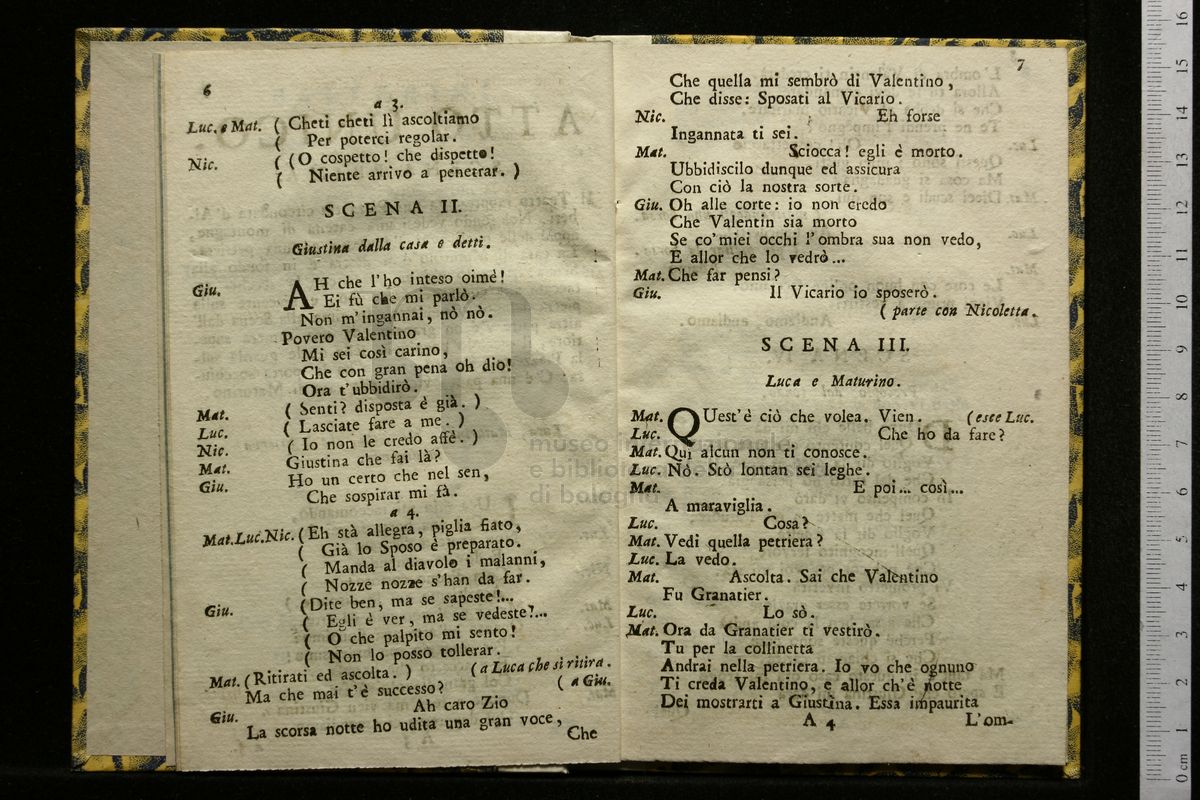 6
a 3.
Luc. e Mat. ( Cheti cheti lì ascoltiamo
( Per poterci regolar.
Nic. ( (O cospetto! che dispetto!
( Niente arrivo a penetrar. )
SCENA II.
Giustina dalla casa e detti.
Giu. AH che l'ho inteso oimè!
Ei fù che mi parlò.
Non m'ingannai, nò nò.
Povero Valentino
Mi sei così carino,
Che con gran pena oh dio!
Ora t'ubbidirò.
Mat. ( Senti? disposta è già. )
Luc. ( Lasciate fare a me. )
Nic. ( Io non le credo affè. )
Mat. Giustina che fai là?
Giu. Ho un certo che nel sen,
Che sospirar mi fà.
a 4.
Mat.Luc.Nic. (Eh stà allegra, piglia fiato,
( Già lo Sposo è preparato.
( Manda al diavolo i malanni,
( Nozze nozze s'han da far.
Giu. (Dite ben, ma se sapeste!...
( Egli è ver, ma se vedeste!...
( O che palpito mi sento!
( Non lo posso tollerar.
Mat. (Ritirati ed ascolta. ) ( a Luca che si ritira.
Ma che mai t'è successo? ( a Giu.
Giu. Ah caro Zio
La scorsa notte ho udita una gran voce,
Che
7
Che quella mi sembrò di Valentino,
Che disse: Sposati al Vicario.
Nic. Eh forse
Ingannata ti sei.
Mat. Sciocca! egli è morto.
Ubbidiscilo dunque ed assicura
Con ciò la nostra sorte.
Giu. Oh alle corte: io non credo
Che Valentin sia morto
Se co'miei occhi l'ombra sua non vedo,
E allor che lo vedrò...
Mat. Che far pensi?
Giu. Il Vicario io sposerò.
( parte con Nicoletta.
SCENA III.
Luca e Maturino.
Mat. QUest'è ciò che volea. Vien. (esce Luc.
Luc. Che ho da fare?
Mat. Qui alcun non ti conosce.
Luc. Nò. Stò lontan sei leghe.
Mat. E poi... così...
A maraviglia.
Luc. Cosa?
Mat. Vedi quella petriera?
Luc. La vedo.
Mat. Ascolta. Sai che Valentino
Fu Granatier.
Luc. Lo sò.
Mat. Ora da Granatier ti vestirò.
Tu per la collinetta
Andrai nella petriera. Io vo che ognuno
Ti creda Valentino, e allor ch'è notte
Dei mostrarti a Giustina. Essa impaurita
A 4 L'om-
museo internazionale
e biblioteca della musica
di bologna